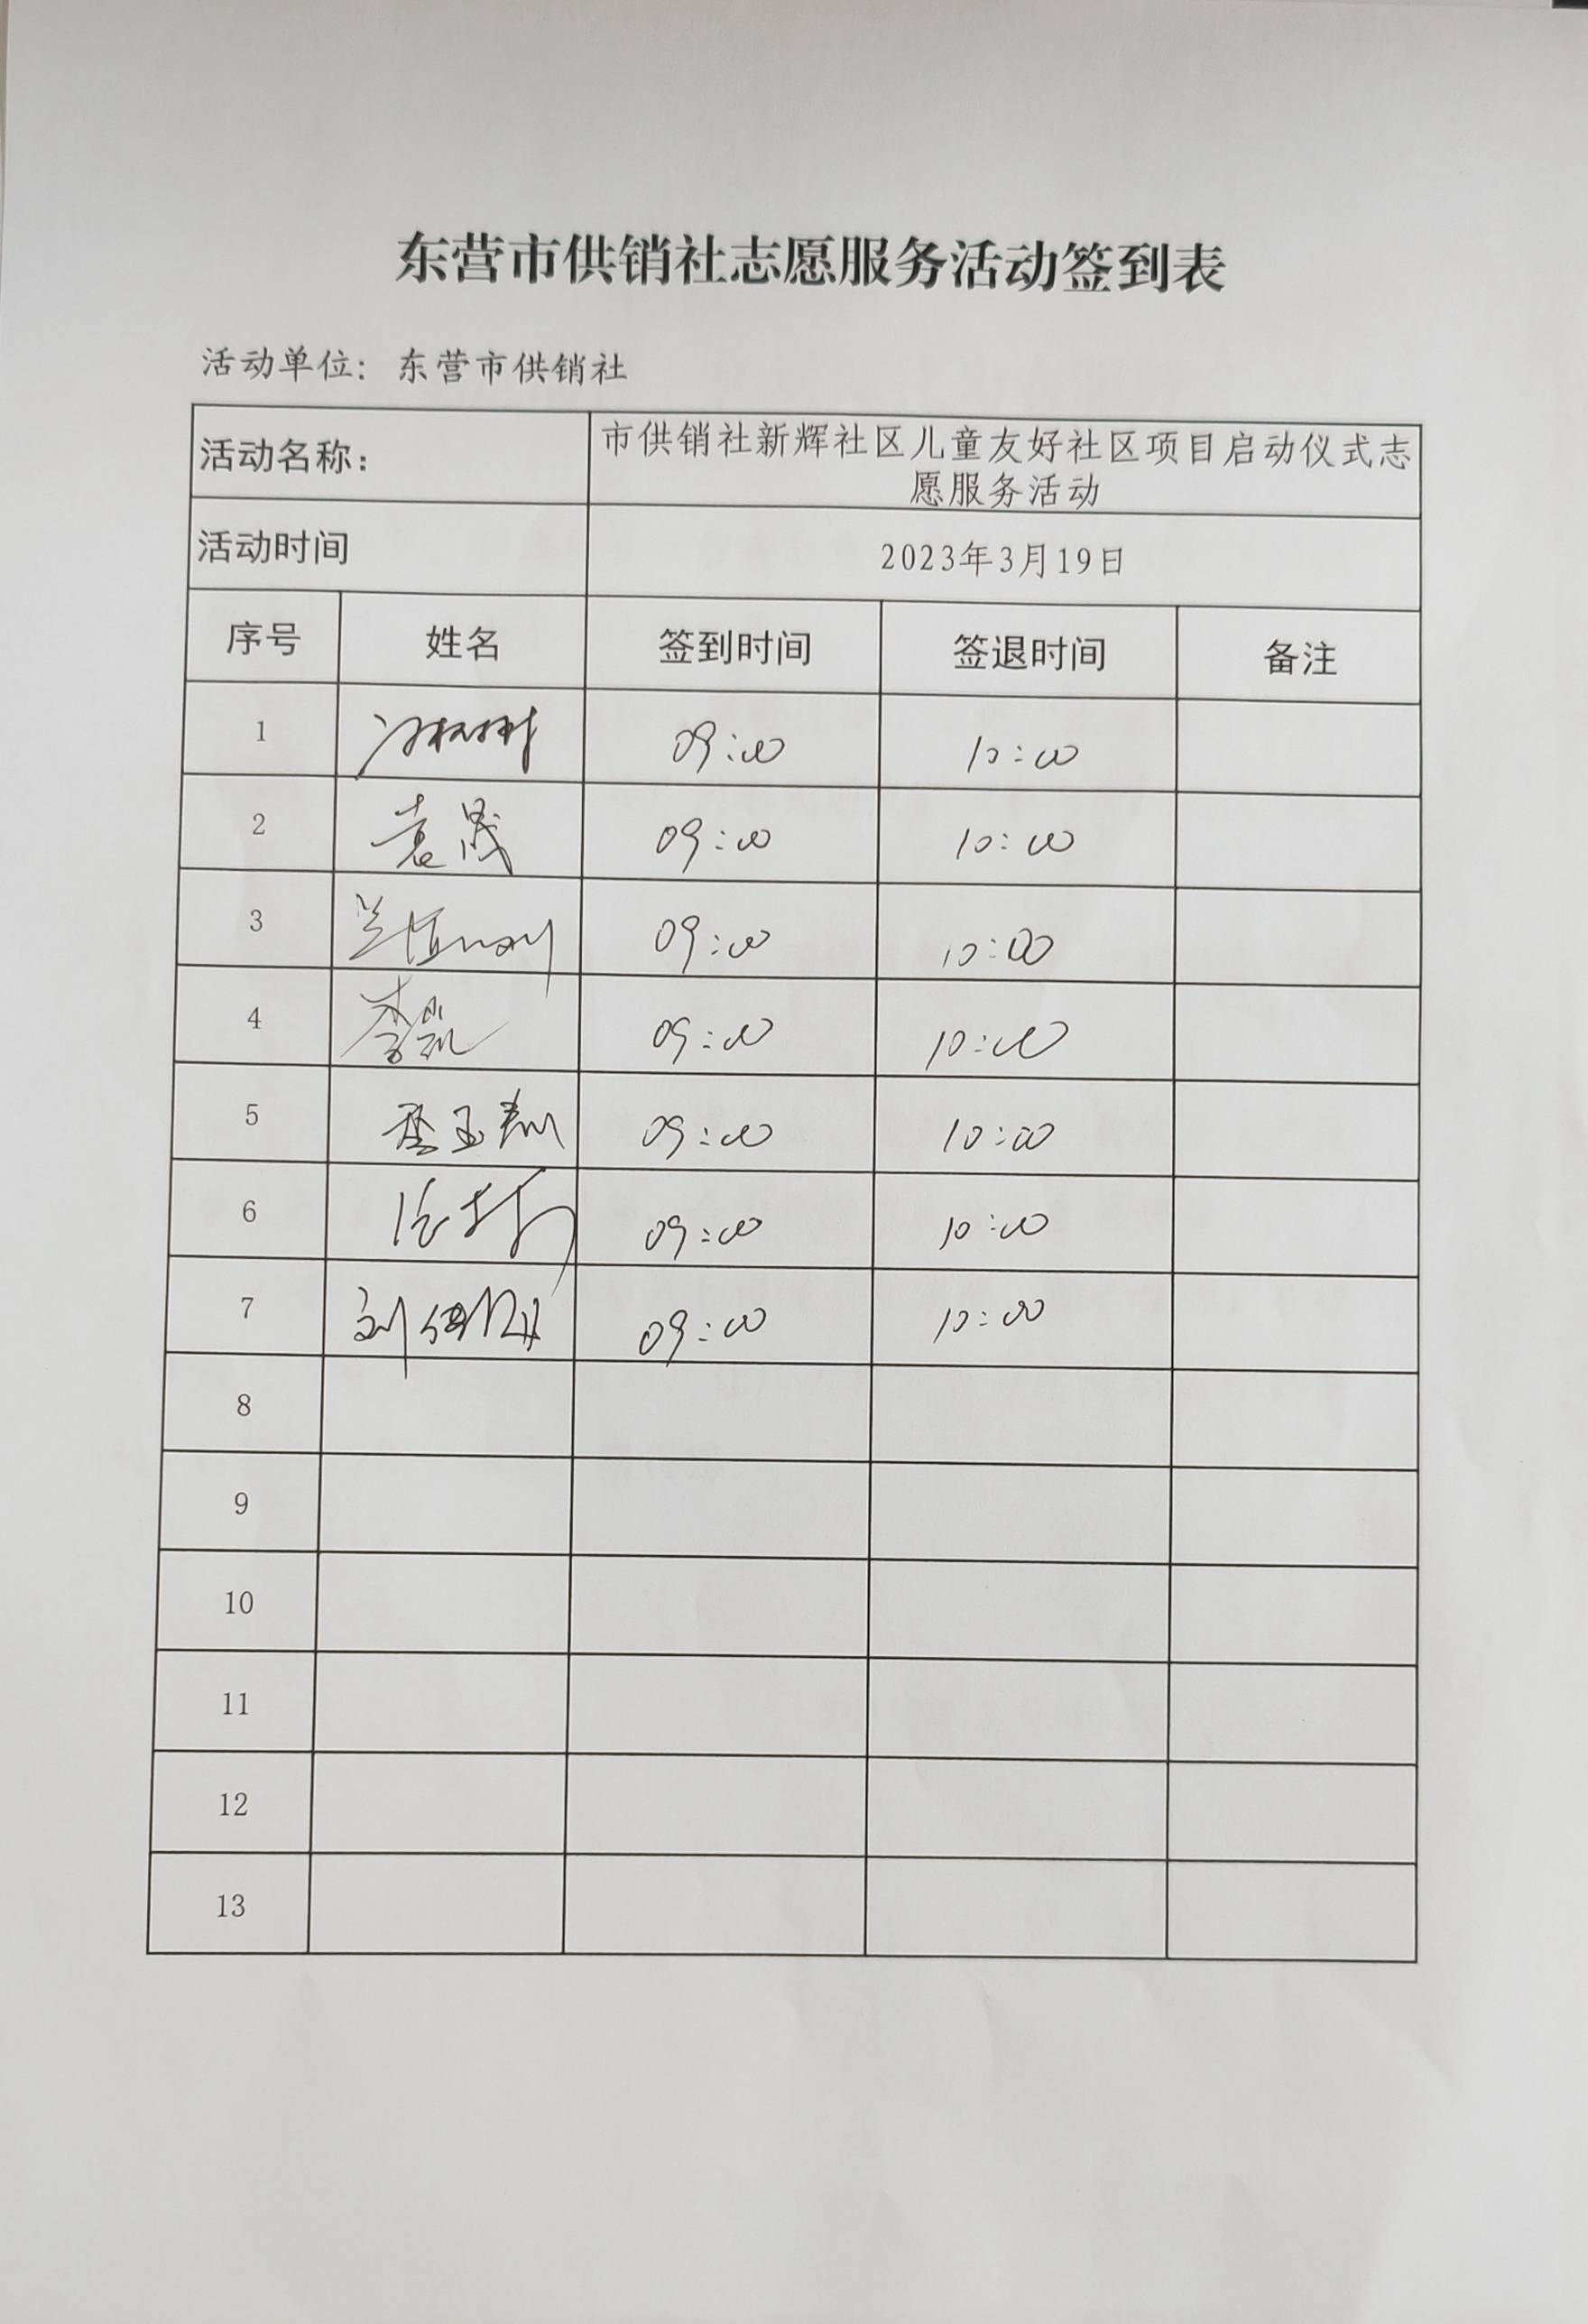 东营市供销社志愿服务活动签到表
活动单位：东营市供销社
活动名称：
市供销社新辉社区儿童友好社区项目启动仪式志
愿服务活动
活动时间 2023年3月19日
序号 姓名 签到时间 签退时间 备注
1 09:00 10:00
2 袁晟 09:00 10:00
3 09:00 10:00
4 李凯 09:00 10:00
5 09:00 10:00
6 09:00 10:00
7 刘 09:00 10:00
8
9
10
11
12
13